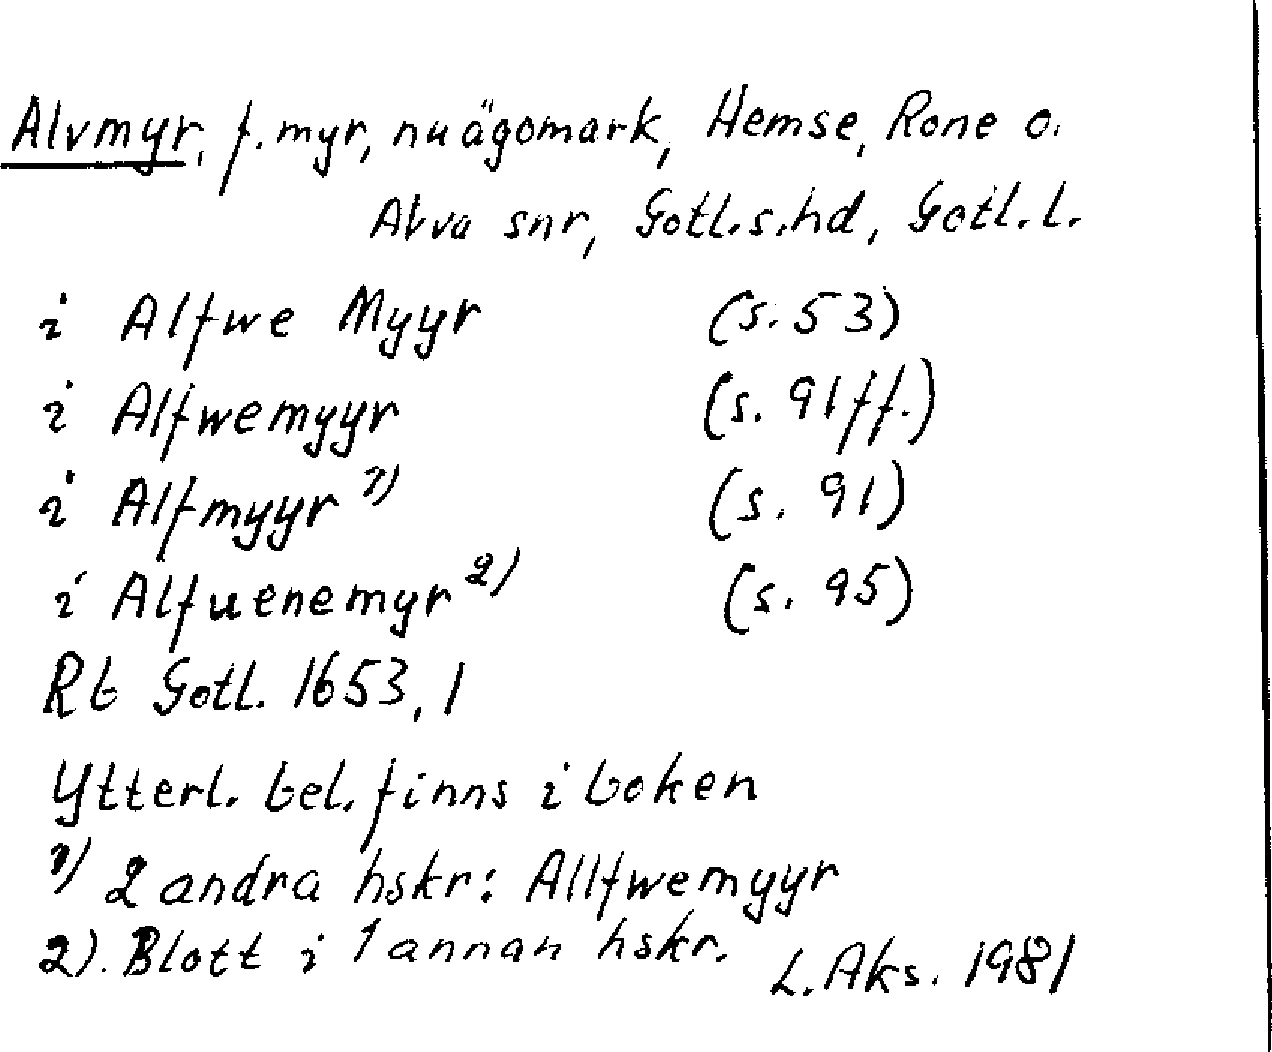 Alvmyr, f. myr, nu ägomark, Hemse, Rone o.
Alva snr, Gotl.s.hd, Gotl.l.
i Alfwe Myyr (s. 53)
i Alfwemyyr (s. 91 ff.)
i Alfmyyr 1) (s. 91)
i Alfuenemyr 2) (s. 95)
Rb Gotl. 1653, 1
Ytterl. bel. finns i boken
1) 2 andra hskr: Allfwemyyr
2). Blott i 1 annan hskr. L. Aks. 1981